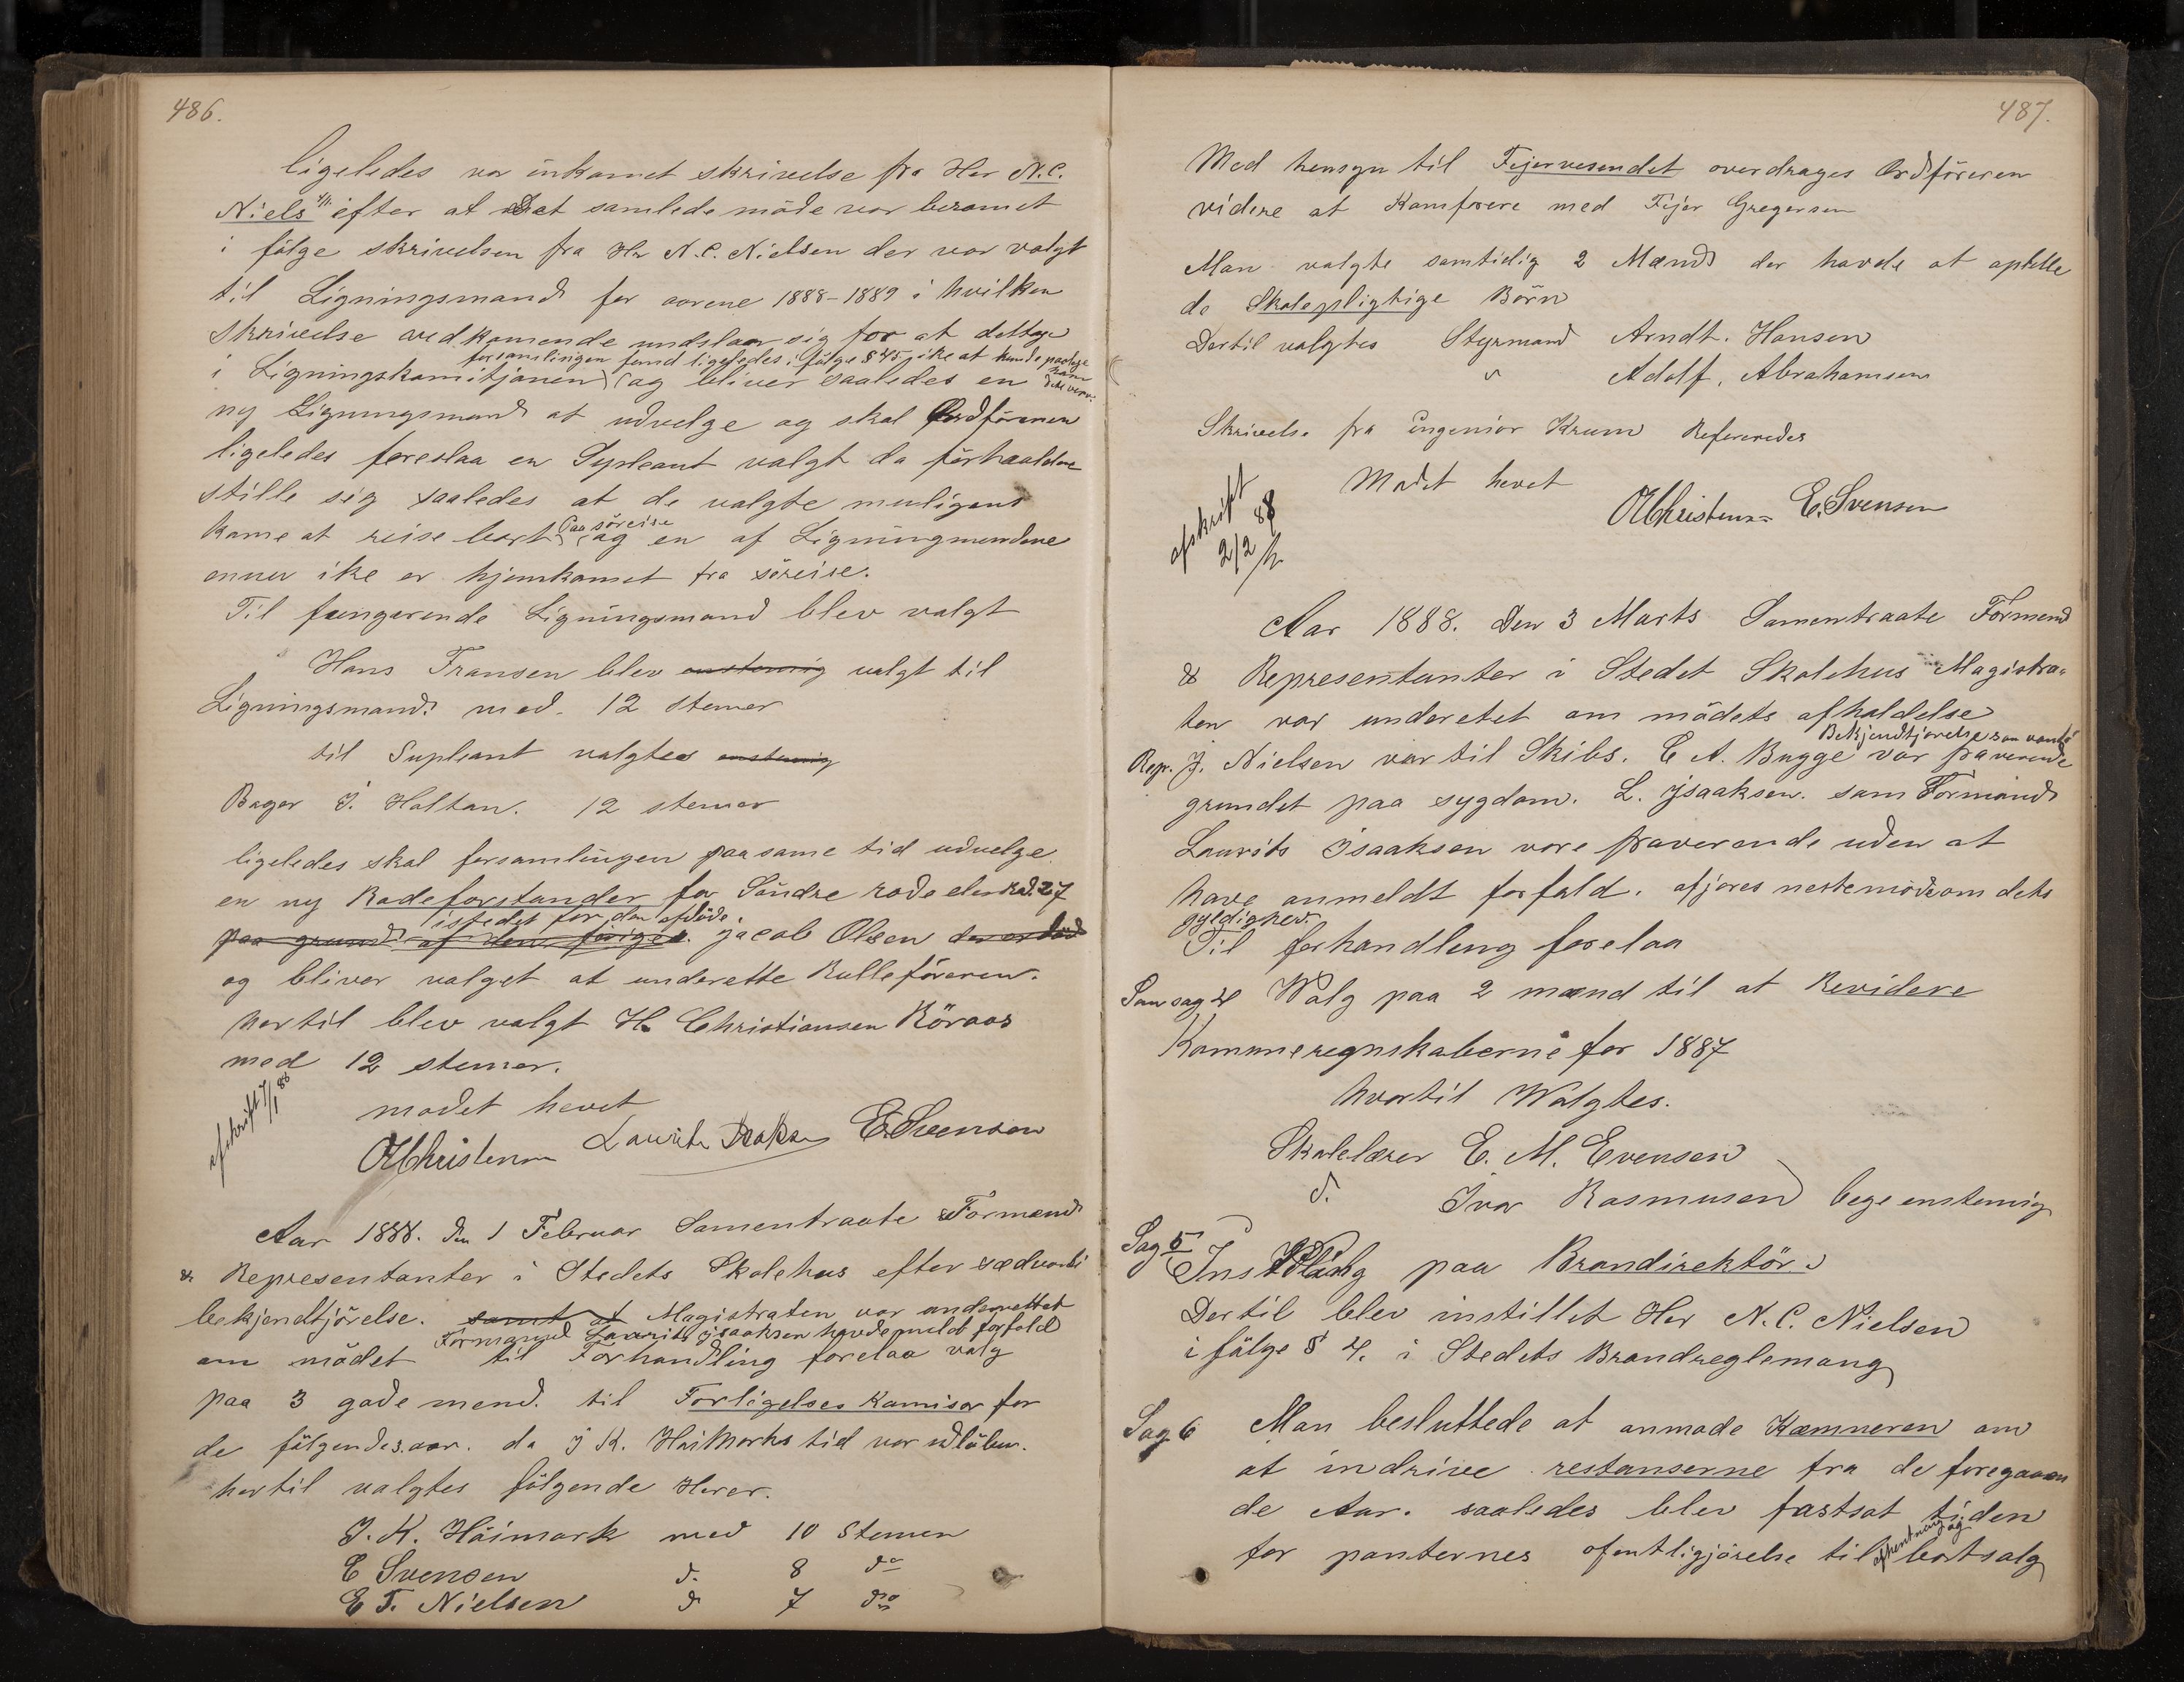 486.
ligeledes var inkomet skrivelse fra Her N.C.
Niels efter at Det samlede möde var beramet
i fölge skrivelsen fra Hr N.C. Nielsen der var valgt
til Ligningsmand for aarene 1888-1889 i hvilken
Skrivelse vedkomende undslaar sig for at deltage
forsamlingen fand ligeledes i fölge § 45 ike at kunde paalegge ham dete verv.
i Ligningskomitjonen og bliver saaledes en
ny Ligningsmand at udvelge og skal Ordföreren
ligeledes foreslaa en Supleant valgt da forhaaldene
stille sig saaledes at de valgte muligens
kame at reise bort paa söreise og en af Ligningmendene
ennu ike er hjemkomet fra söreise.
Til fungerende Ligningsmand blev valgt
Hans Fransen blev enstemig valgt til
Ligningsmand med 12 stemer
til Supleant valgtes enstemig
Bager J. Holtan. 12 stemer
ligeledes skal forsamlingen paa same tid udvelge
en ny Rodeforstander for Söndre rode eler Rod. 27
istedet for den afdöde.
paa grund af den foriges. Jacob Olsen der er död
og bliver valget at underette Rulleföreren.
hertil blev valgt H. Christiansen Röraas
med 12 stemer.
afskrift 7/1 88
mödet hevet
OChristensen Laurits Isaksen E. Svensen
Aar 1888. den 1 Februar Samentraate Formend
& Representanter i Stedets Skolehus efter sædvanli
bekjendtjörelse. samt at Magistraten var underrettet
Formand Laurits Jsaaksen havde meldt forfald
om mödet til Forhandling forelaa valg
paa 3 gode mend. til Forligelses Kamisor for
de fölgendes aar. da J K. Höimorks tid var udlöben.
hertil valgtes fölgende Herer.
J. K. Höimark med 10 Stemer
E Svensen d. 8 do
E T. Nielsen d 7 do
487.
Med hensyn til Fejervesendet overdrages Ordföreren
videre at Kamferere med Fejer Gregersen
Man valgte samtidig 2 Mænd der havde at optelle
de Skolepligtige Börn
Dertil valgtes Styrmand Arndt. Hansen
" Adolf. Abrahamsen
Skrivelse fra ingeniör Krum Refereredes
Mödet hevet
afskrift 2/2 88
OChristensen E. Svensen
Aar 1888. Den 3 Marts Samentraate Formend
& Representanter i Stedet Skolehus Magistra-
ten var underetet om mödets afholdelse
Bekjendtjörelse som vanlig
Repr. J. Nielsen var til Skibs. C A. Bugge var fraverende
grundet paa sygdom. L. Jsaaksen. sam Formand
Laurits Isaaksen vare fraverende uden at
have anmeldt forfald. afjöres neste möde om dets
gyldighed.
Til forhandling forelaa
Sam sag 4 Walg paa 2 mænd til at Revidere
Komuneregnskaberne for 1887
hvortil Walgtes.
Skolelærer E. M. Evensen
d. Ivar Rasmusen bege enstemig
Sag 5 Instilling paa Brandirektör.
Dertil blev instillet Her N. C. Nielsen
i fölge § 4. i Stedets Brandreglemang
Sag 6 Man besluttede at anmode Kæmneren om
at indrive restanserne fra de foregaaen
de Aar. saaledes blev fastsat tiden
afhentning og
for panternes ofentligjörelse til bortsalg